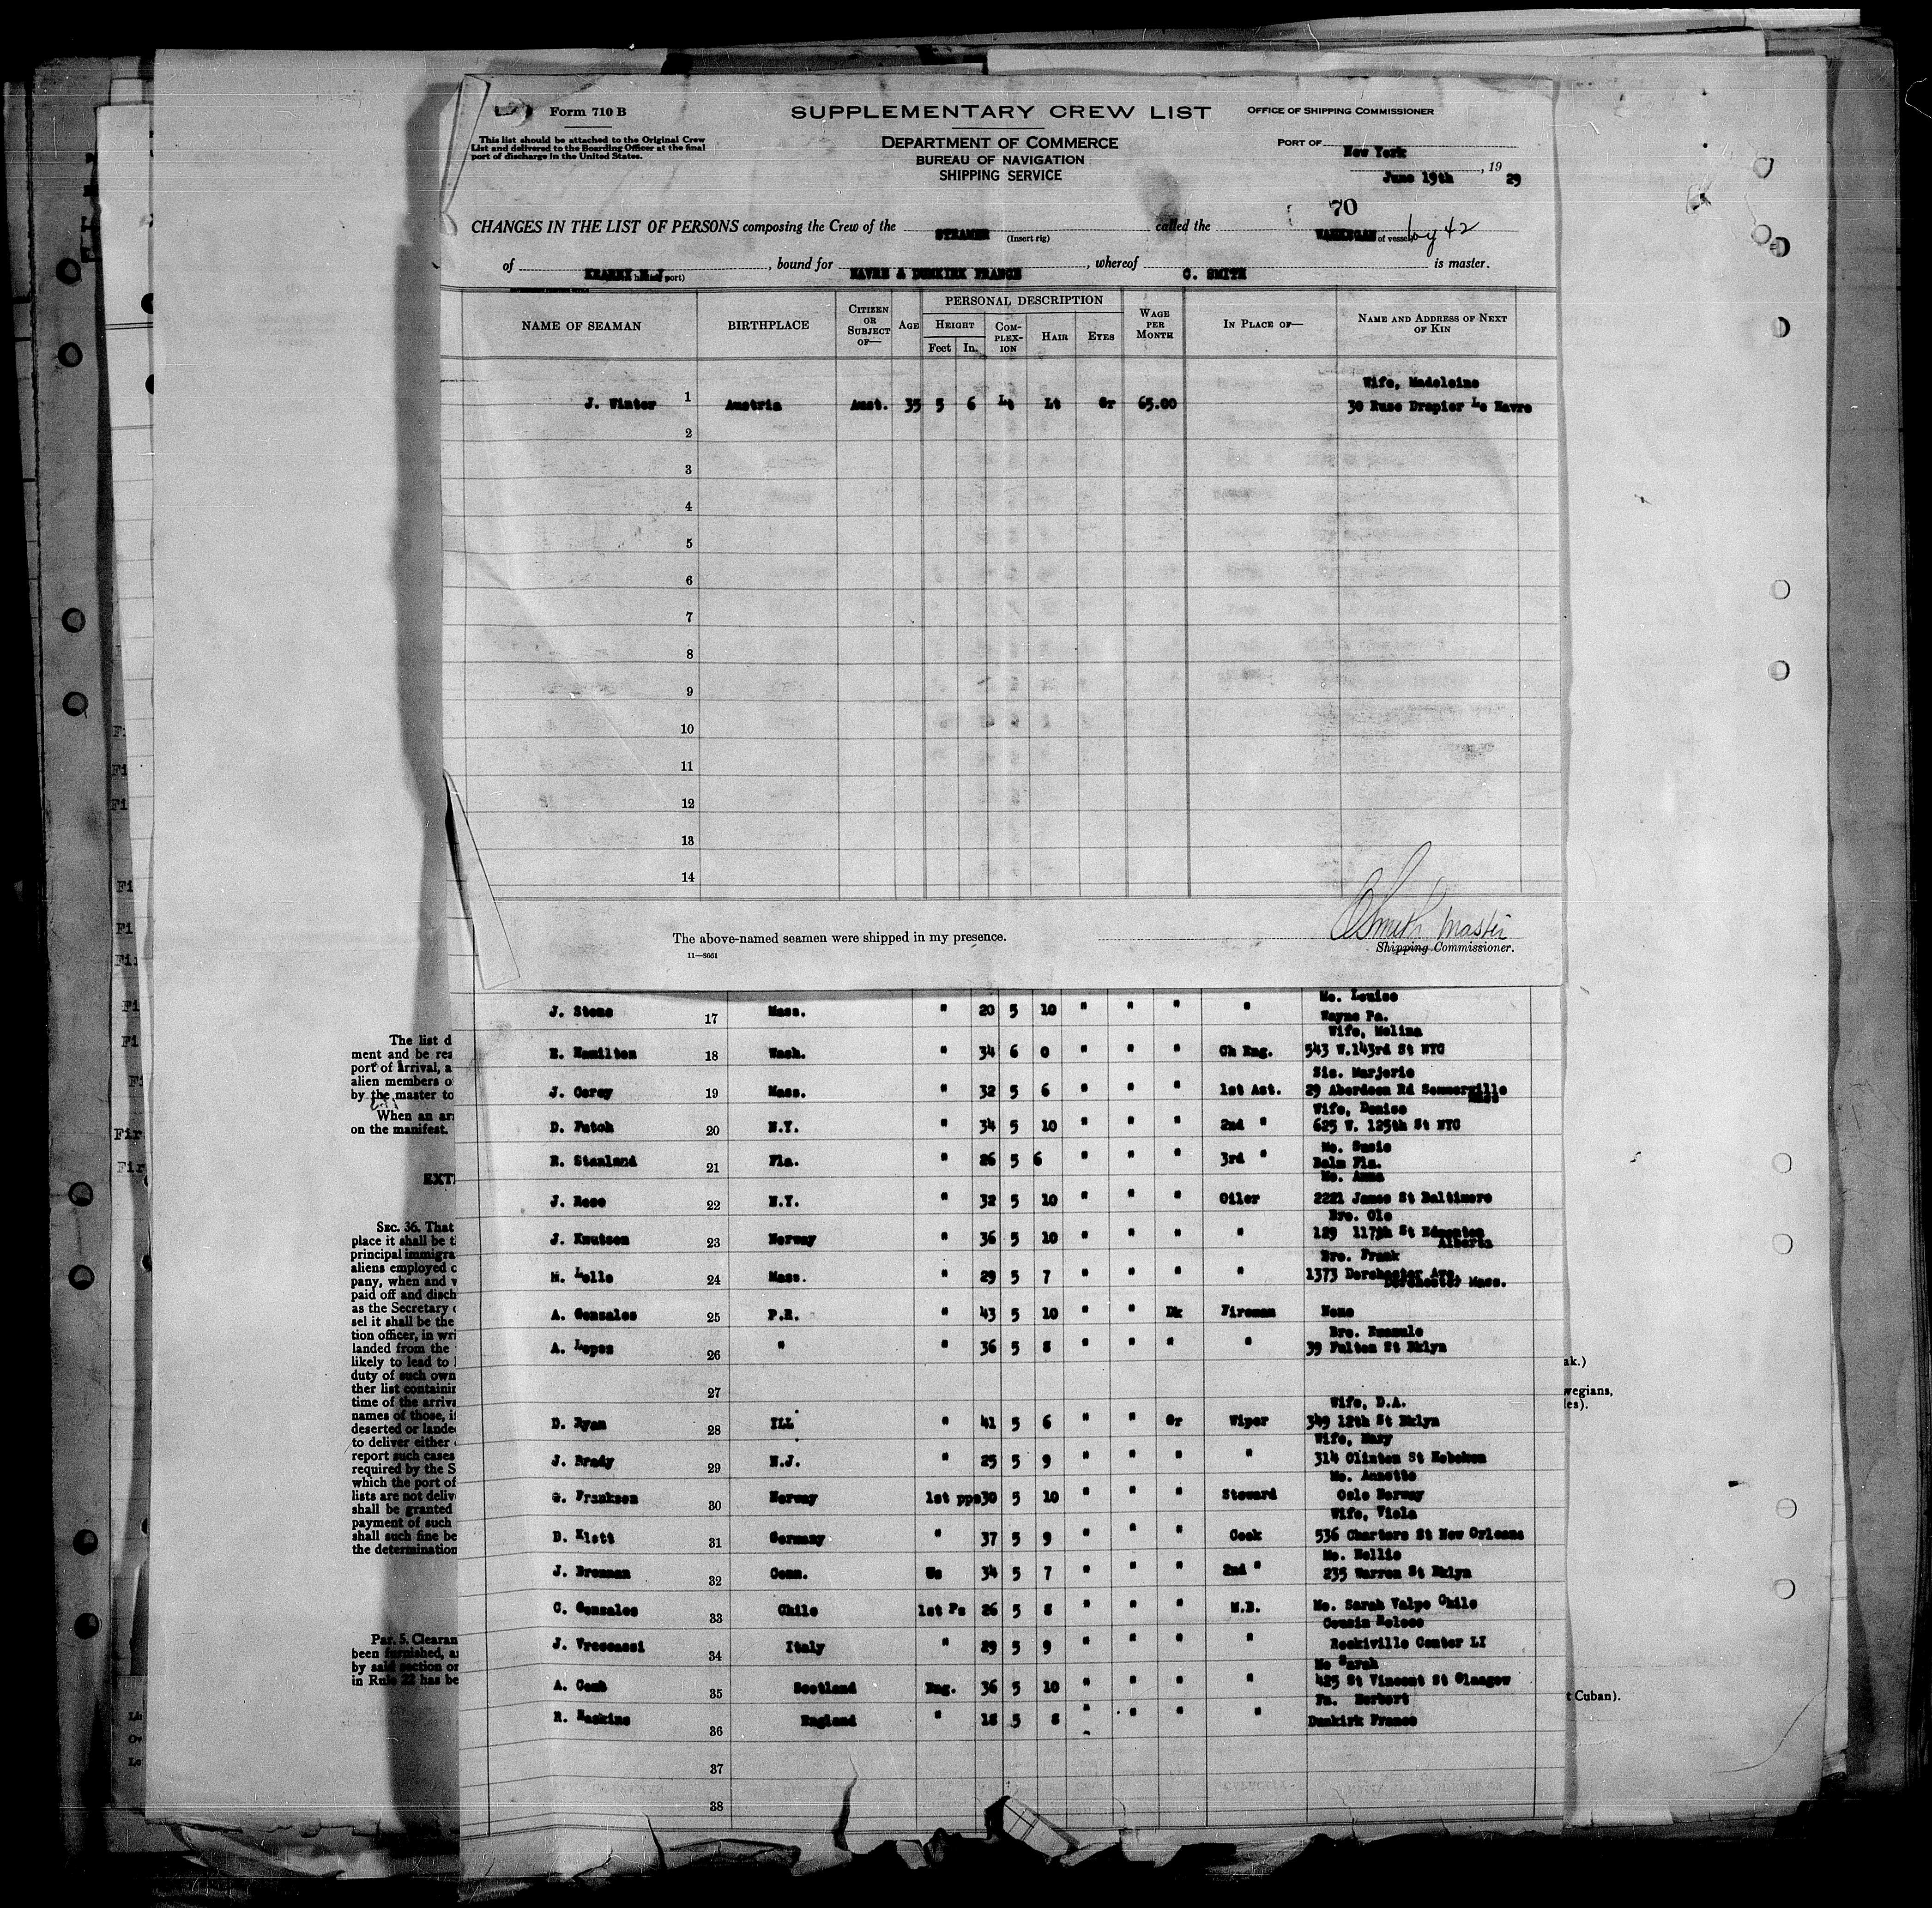 Form 710 B
SUPPLEMENTARY CREW LIST
OFFICE OF SHIPPING COMMISSIONER
This list should be attached to the Original Crew
List and delivered to the Boarding Officer at the final
port of discharge in the United States.
DEPARTMENT OF COMMERCE
BUREAU OF NAVIGATION
SHIPPING SERVICE
PORT OF New York
June 19th, 19 29
70
CHANGES IN THE LIST OF PERSONS composing the Crew of the STEAMER (Insert rig) called the WAUKEGAN of vessel
of KEARNY N J port), bound for HAVRE & DUNKIRK FRANCE, whereof C. SMITH is master.
NAME OF SEAMAN BIRTHPLACE CITIZEN OR SUBJECT OF— AGE PERSONAL DESCRIPTION HEIGHT Feet In. COMPLEXION HAIR EYES WAGE PER MONTH IN PLACE OF— NAME AND ADDRESS OF NEXT OF KIN
Wife, Madeleine
J. Winter 1 Austria Aust. 35 5 6 Lt Lt Gr 65.00 30 Ruse Drapier Le Havre
2
3
4
5
6
7
8
9
10
11
12
13
14
C Smith Master
The above-named seamen were shipped in my presence.
Shipping Commissioner.
11—8661
Mo. Louise
J. Stone 17 Mass. " 20 5 10 " " " " Wayne Pa.
Wife, Melina
E. Hamilton 18 Wash. " 34 6 0 " " " Ch Eng. 543 W.143rd St NYC
Sis. Marjorie
J. Corey 19 Mass. " 32 5 6 " " " 1st Ast. 29 Aberdeen Rd Sommerville
Mass
Wife, Denise
D. Patch 20 N.Y. " 34 5 10 " " " 2nd " 625 W. 125th St NYC
Mo. Susie
R. Stanland 21 Fla. " 26 5 6 " " " 3rd " Balm Fla.
Mo. Anna
J. Rose 22 N.Y. " 32 5 10 " " " Oiler 2221 James St Baltimore
Bro. Ole
J. Knutson 23 Norway " 36 5 10 " " " " 129 117th St Edmonton
Alberta
Bro. Frank
H. Lolle 24 Mass. " 29 5 7 " " " " 1373 Dorchester Ave.
Dorchester Mass.
A. Gonzales 25 P.R. " 43 5 10 " " Dk Fireman None
Bro. Emanule
A. Lopez 26 " " 36 5 8 " " " " 39 Fulton St Bklyn
27
Wife, D.A.
D. Ryan 28 ILL " 41 5 6 " " Gr Wiper 349 12th St Bklyn
Wife, Mary
J. Brady 29 N.J. " 25 5 9 " " " " 314 Clinton St Hoboken
Mo. Annette
G. Franksen 30 Norway 1st pps 30 5 10 " " " Steward Oslo Norway
Wife, Viola
D. Klett 31 Germany " 37 5 9 " " " Cook 536 Charters St New Orleans
Mo. Nellie
J. Brennan 32 Conn. Us 34 5 7 " " " 2nd " 235 Warren St Bklyn
C. Gonzales 33 Chile 1st Ps 26 5 8 " " " M.B. Mo. Sarah Valpo Chile
Cousin
J. Vrescassi 34 Italy " 29 5 9 " " " " Rockiville Center LI
Mo Sarah
A. Comb 35 Scotland Eng. 36 5 10 " " " " 425 St Vincent St Glasgow
Fa. Herbert
R. Haskins 36 England " 18 5 8 " " " " Dunkirk France
37
38
The list d
ment and be rea
port of arrival, a
alien members o
by the master to
When an arr
on the manifest.
EXT
SEC. 36. That
place it shall be t
principal immigra
aliens employed o
pany, when and w
paid off and disch
as the Secretary o
sel it shall be the
tion officer, in wri
landed from the
likely to lead to
duty of such own
ther list containin
time of the arriva
names of those, if
deserted or lande
to deliver either
report such cases
required by the S
which the port of
lists are not deliv
shall be granted
payment of such
shall such fine be
the determination
Par. 5. Clearan
been furnished, a
by said section or
in Rule 22 has be
ak.)
wegians,
les).
t Cuban).